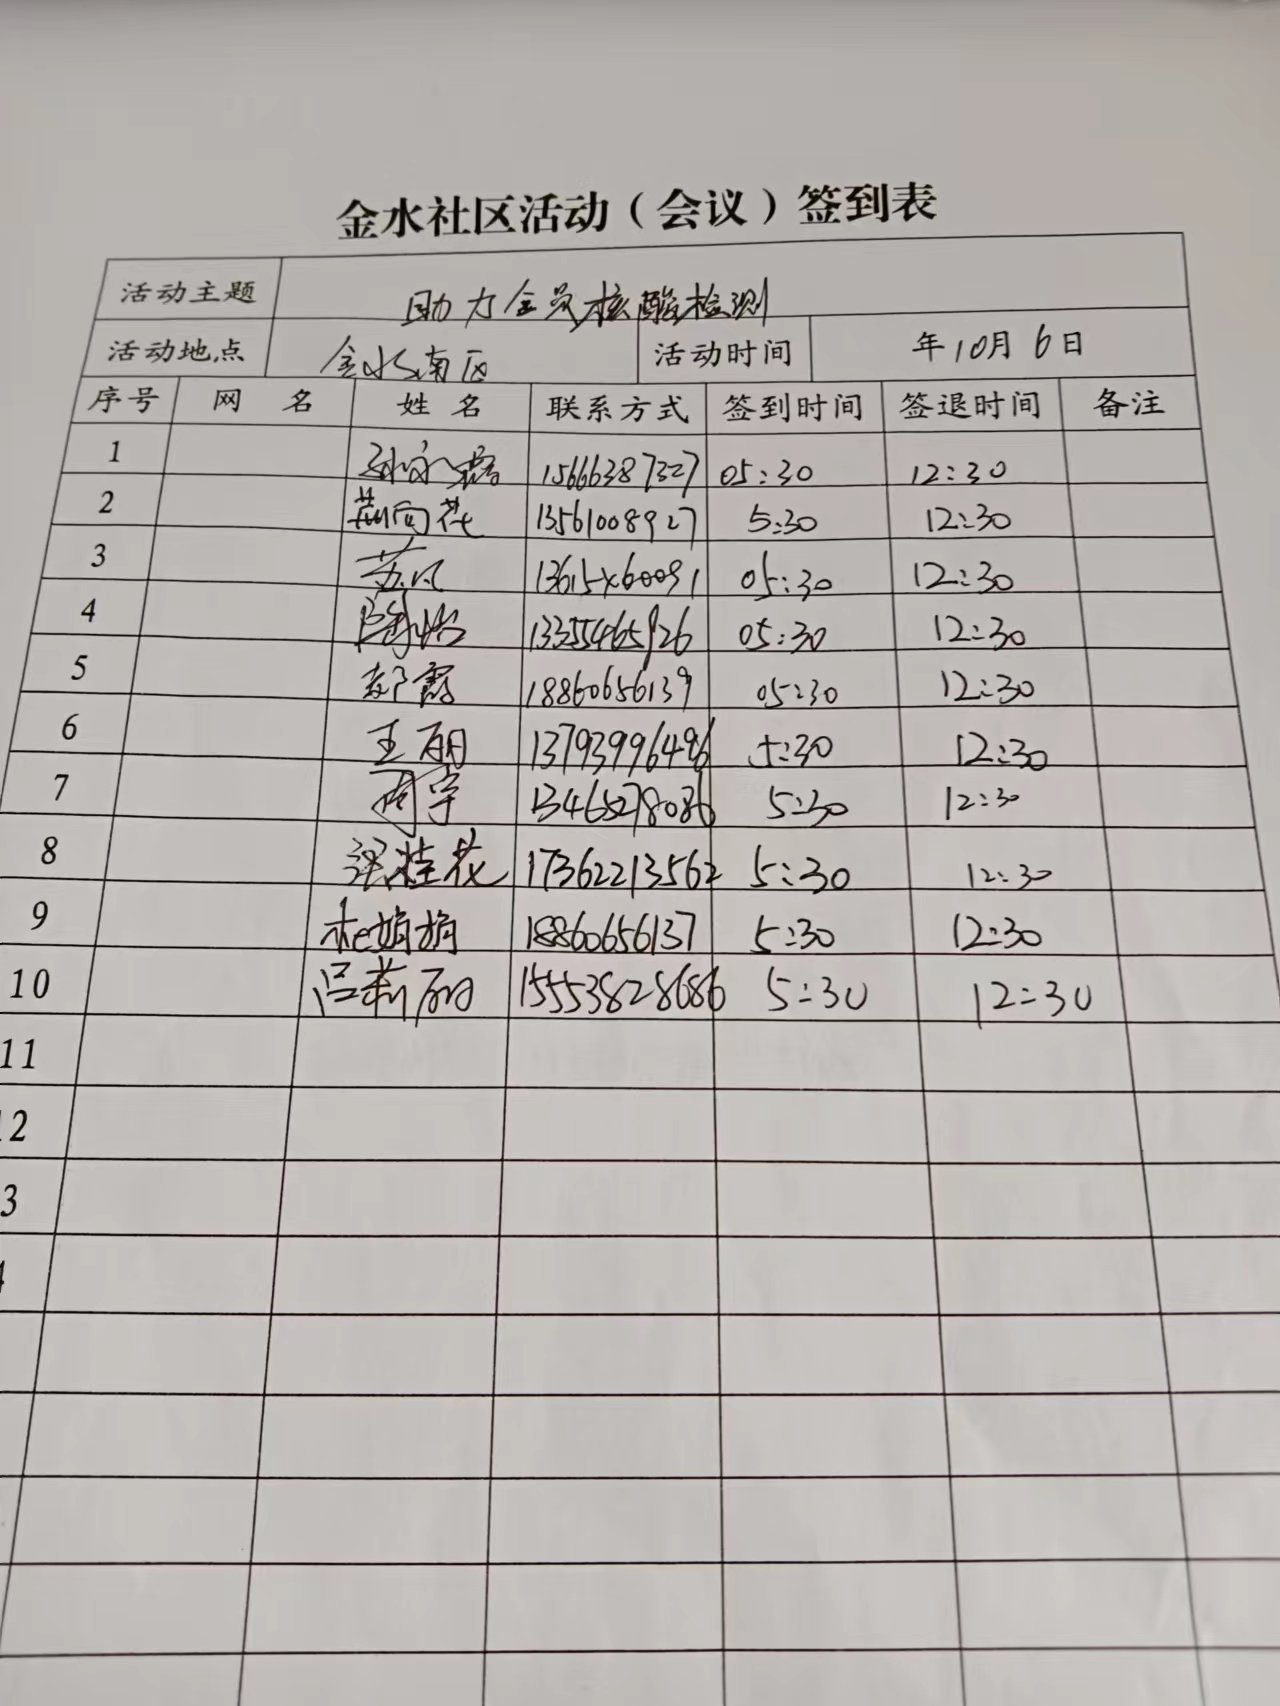 金水社区活动（会议）签到表
活动主题 助力全员核酸检测
活动地点 金水南区 活动时间 年10月6日
序号 网 名 姓 名 联系方式 签到时间 签退时间 备注
1 15666387327 05:30 12:30
2 13561008927 5:30 12:30
3 05:30 12:30
4 13355465926 05:30 12:30
5 18860656139 05:30 12:30
6 王丽 13793996496 5:30 12:30
7 13465278086 5:30 12:30
8 张桂花 17362213562 5:30 12:30
9 杜娟娟 18860656137 5:30 12:30
10 吕莉丽 15553828686 5:30 12:30
11
12
3
4